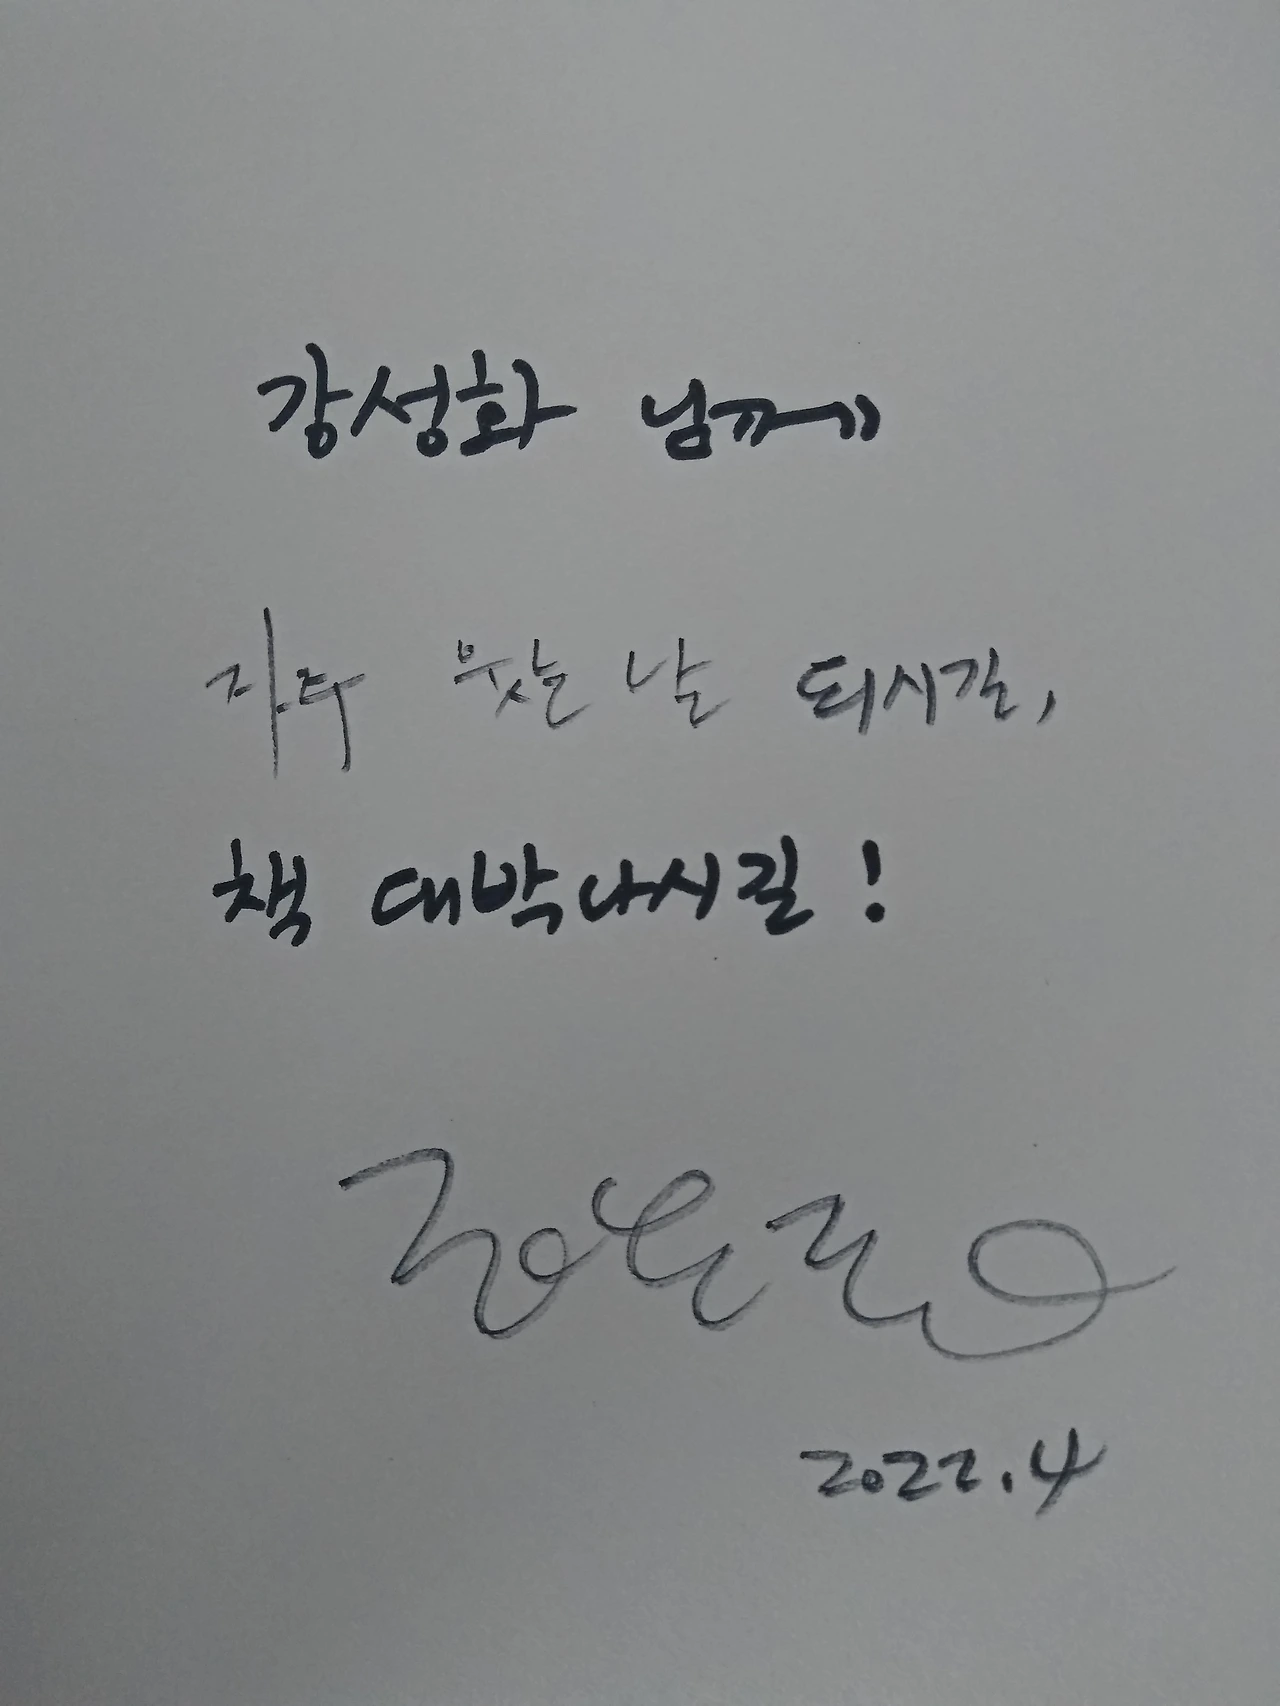 강성화 님께
자주 웃는 날 되시길,
책 대박나시길!
2022.4